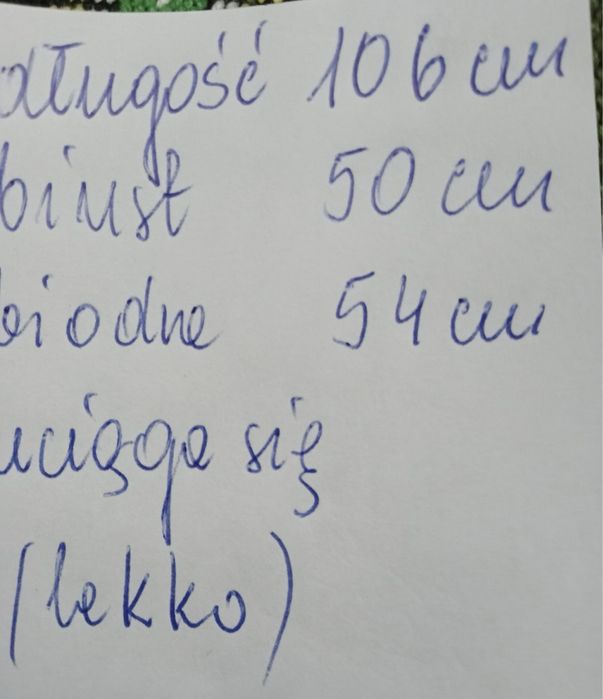 długość 106 cm
biust 50 cm
biodra 54 cm
uciąga się
(lekko)